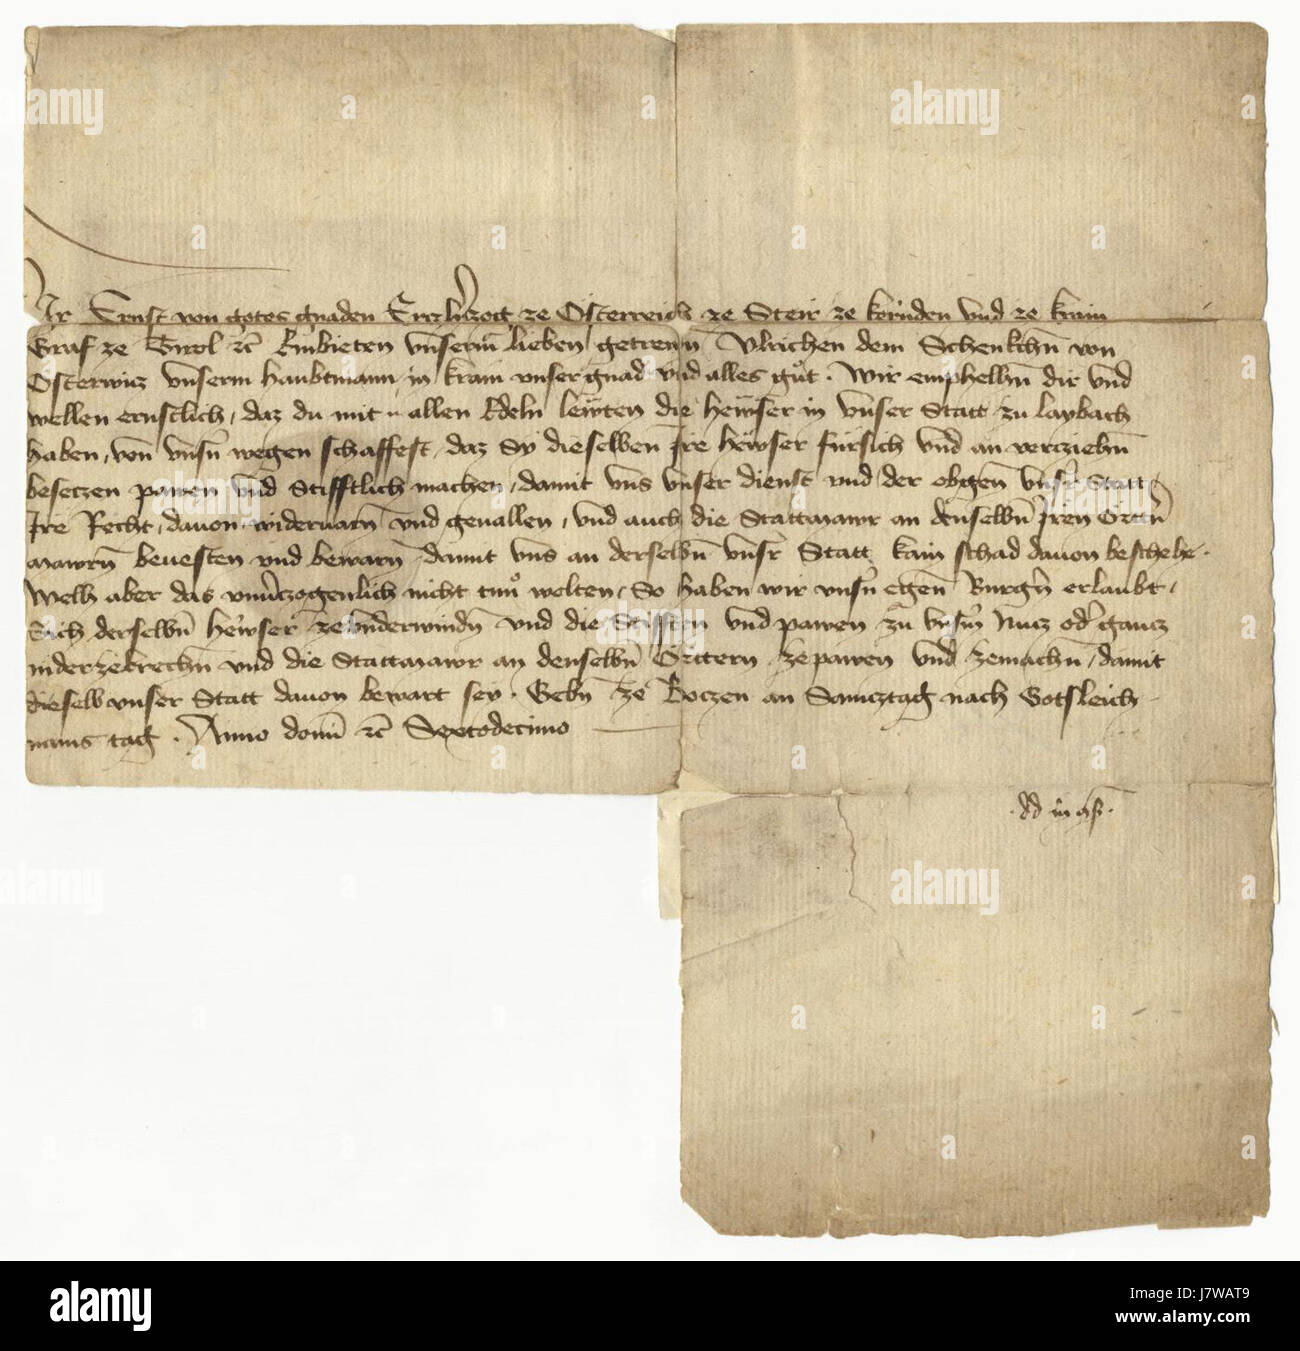 Wir Ernst von gotes gnaden Erczherczog ze Österreich ze Steir ze kernden vnd ze krain
Graf ze Tirol etc Embieten vnserm lieben getrewn Vlrichen dem Schenkchn von
Osterwicz vnserm haubtmann in krain vnser gnad vnd alles gůt. Wir emphelhn dir vnd
wellen ernstlich, daz du mit allen Edeln lewten die hewser in vnser Statt zu laybach
haben, von vnsn wegen schaffest, daz Sy dieselben Ire hewser fürsich vnd an verziehn
beseczen pawen vnd Stifftlich machen, damit vns vnser dienst vnd der obgen vnsr Statt
Ire Recht, dauon widervarn vnd geuallen, vnd auch die Stattmawr an denselbn Iren Örttrn
mawrn beuesten vnd bewarn damit vns an derselbn vnsr Statt kain schad dauon beschehe.
Welh aber das vnuerczogenlich nicht tun wolten, So haben wir vnsn egen Burgern erlaubt,
Sich derselbn hewser zevnderwindn vnd die Stifften vnd pawen zu vnsrm Nucz oder gancz
niderzebrechn vnd die Stattmawr an denselbn Örttern, zepawen vnd zemachn, damit
dieselb vnser Statt dauon bewart sey. Gebn ze Boczen an Samcztag nach Gotsleich-
nams tag. Anno domi etc Sextodecimo
alamy
a
J7WAT9
www.alamy.com